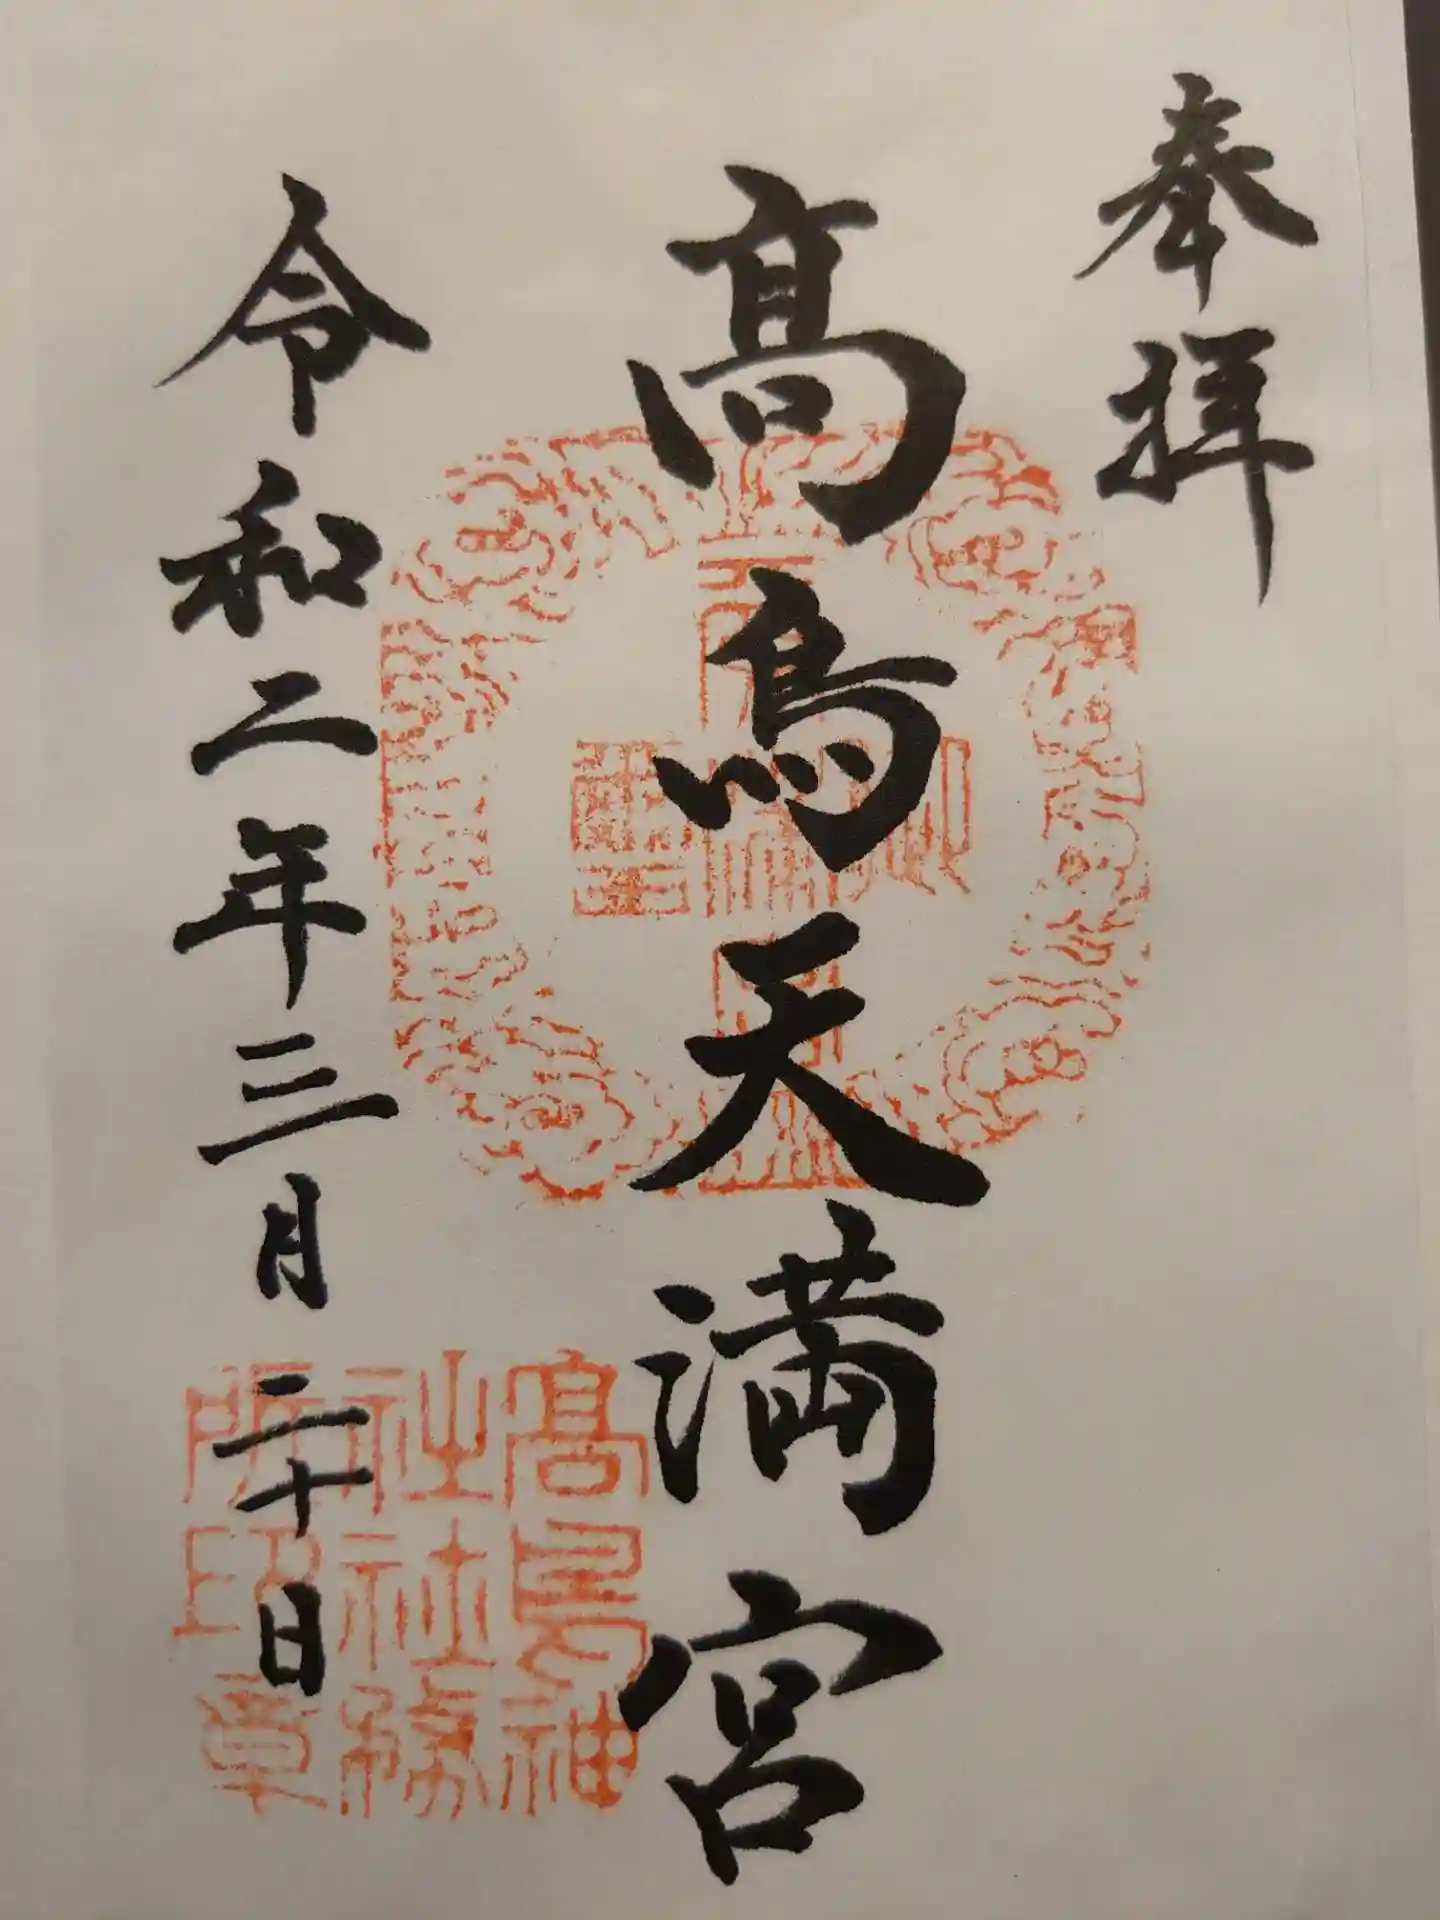 奉拝
高烏天満宮
令和二年三月二十日
高烏神
社社務
所印章